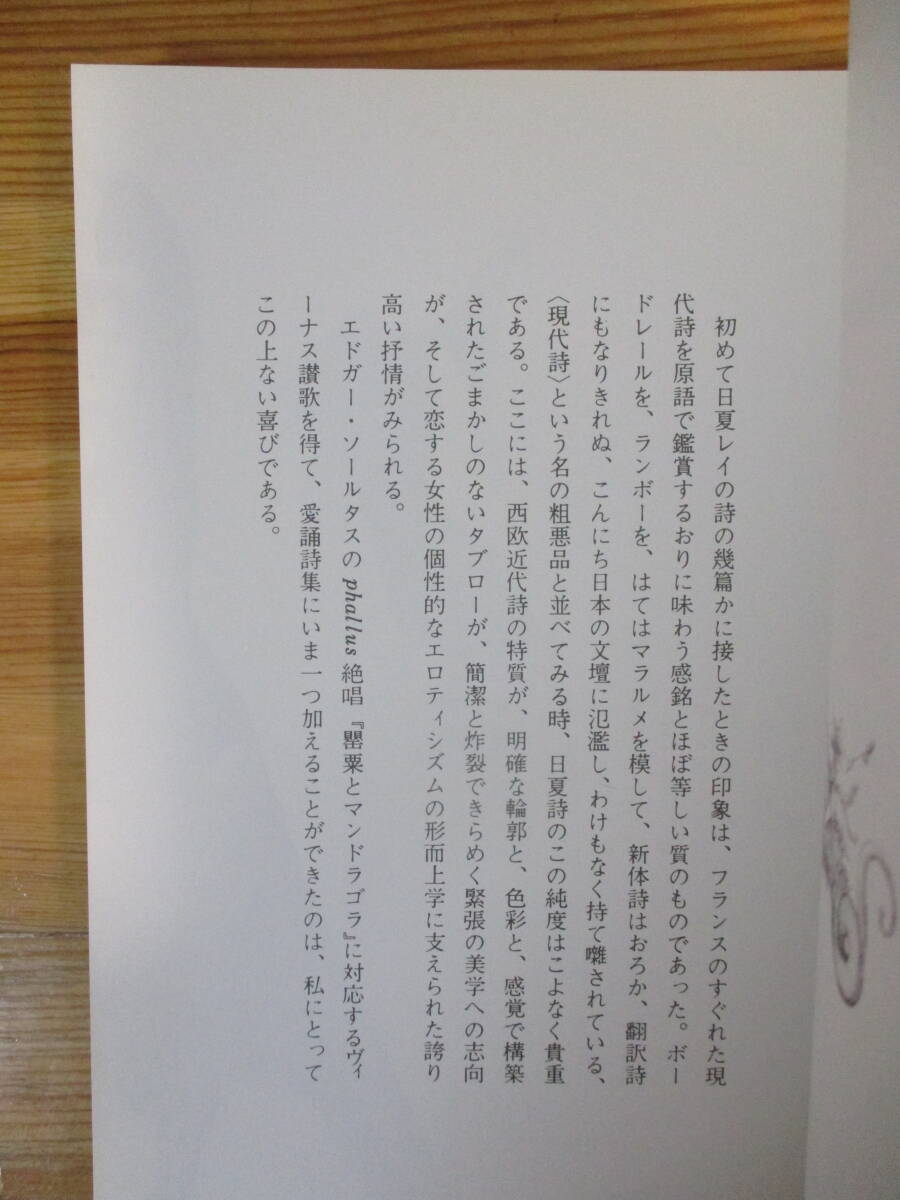 初めて日夏レイの詩の幾篇かに接したときの印象は、フランスのすぐれた現
代詩を原語で鑑賞するおりに味わう感銘とほぼ等しい質のものであった。ボー
ドレールを、ランボーを、はてはマラルメを模して、新体詩はおろか、翻訳詩
にもなりきれぬ、こんにち日本の文壇に氾濫し、わけもなく持て囃されている、
〈現代詩〉という名の粗悪品と並べてみる時、日夏詩のこの純度はこよなく貴重
である。ここには、西欧近代詩の特質が、明確な輪郭と、色彩と、感覚で構築
されたごまかしのないタブローが、簡潔と炸裂できらめく緊張の美学への志向
が、そして恋する女性の個性的なエロティシズムの形而上学に支えられた誇り
高い抒情がみられる。
エドガー・ソールタスの phallus 絶唱『罌粟とマンドラゴラ』に対応するヴィ
ーナス讃歌を得て、愛誦詩集にいま一つ加えることができたのは、私にとって
この上ない喜びである。